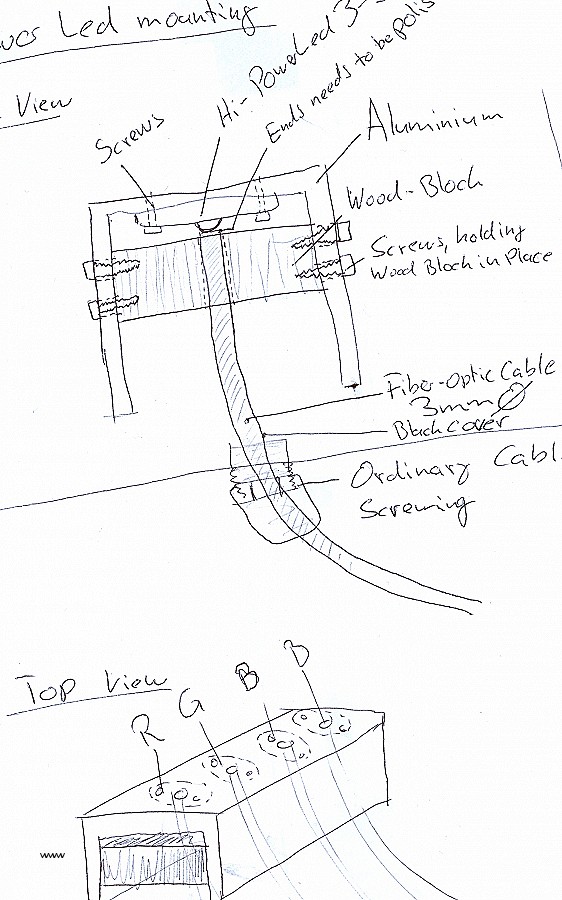 Led mounting
View
Hi-Powe Led 3-
Ends needs to be polis
Screws
Aluminium
Wood-Block
Screws, holding
Wood Block in Place
Fiber-Optic Cable
3mm Ø
Black cover
Ordinary Cabl
Screwing
Top View
R G B B
www